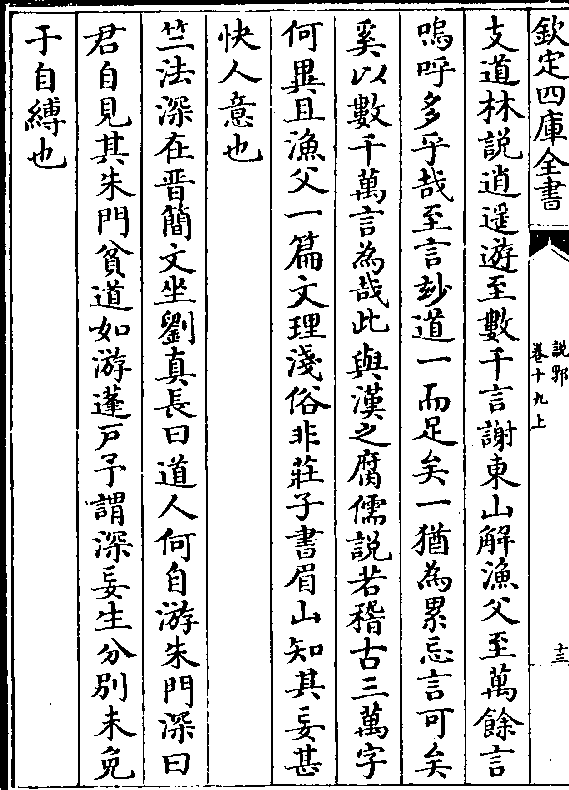 欽定四庫全書
說郛
卷十九上
十三
支道林說逍遥遊至數千言謝東山解漁父至萬餘言
嗚呼多乎哉至言玅道一而足矣一猶為累忘言可矣
奚以數千萬言為哉此與漢之腐儒說若稽古三萬字
何異且漁父一篇文理淺俗非莊子書眉山知其妄甚
快人意也
竺法深在晋簡文坐劉真長曰道人何自游朱門深曰
君自見其朱門貧道如游蓬戸予謂深妄生分别未免
于自縛也